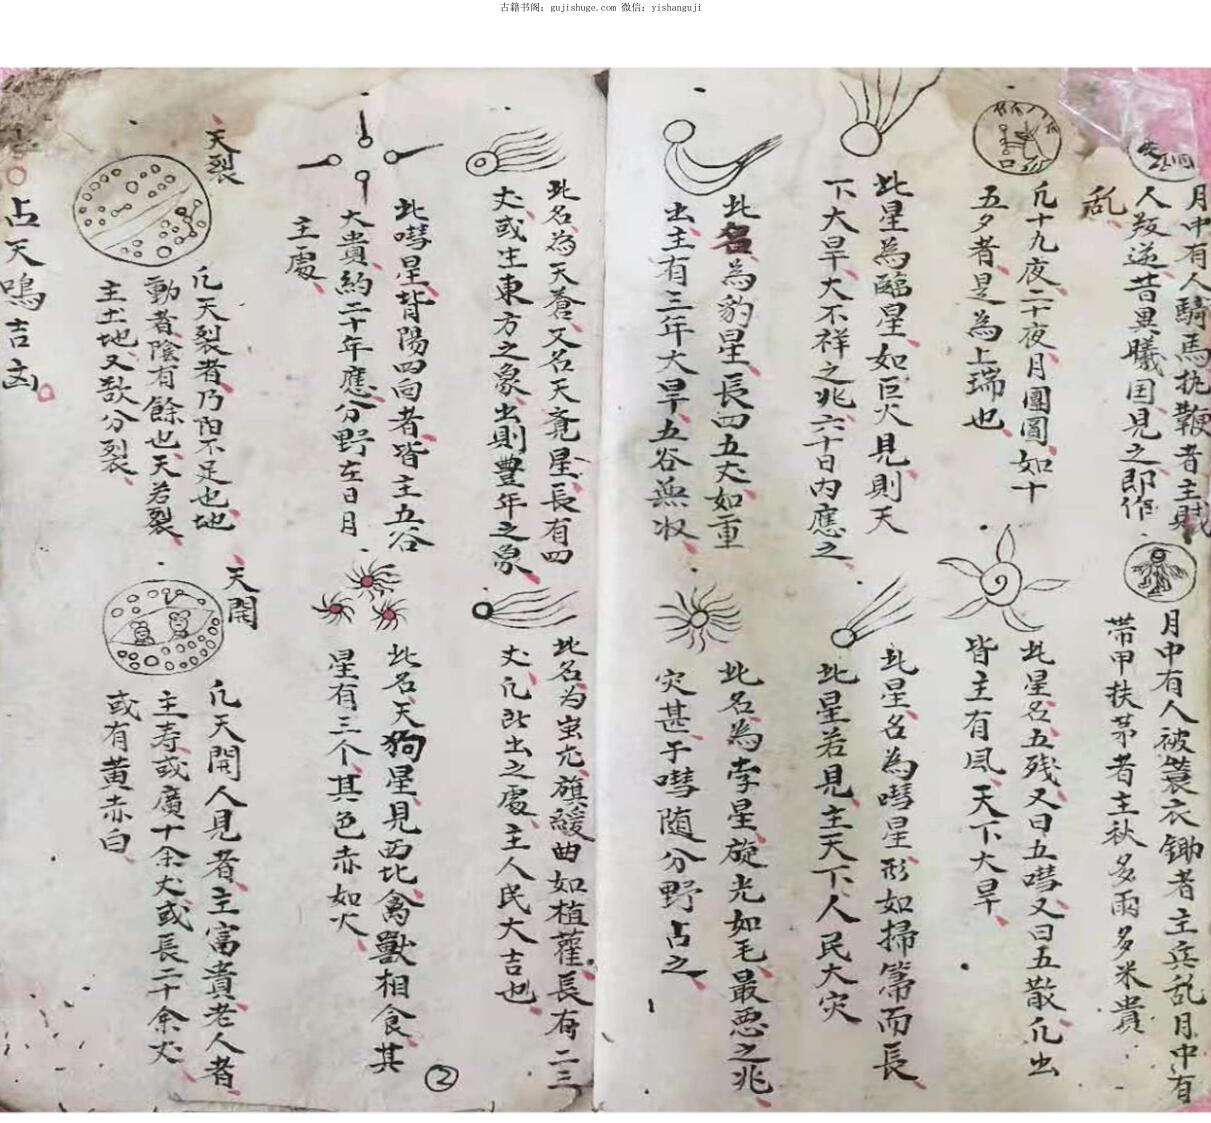 古籍书阁：gujishuge.com 微信：yishanguji
月中有人騎馬执鞭者主賊
人叛逆昔異曦国見之即作
乱
月中有人被蓑衣锄者主兵乱月中有
带甲扶茅者主秋多雨多米贵
凢十九夜二十夜月團圓如十
五夕者是為上瑞也
此星名五残又曰五嘒又曰五散凢出
皆主有風天下大旱
此星為臨星如巨火見則天
下大旱大不祥之兆六十日内應之
此星名為嘒星形如掃箒而長
此星若見主天下人民大灾
此名為豹星長四五丈如重
出主有三年大旱五谷無收
此名為孛星旋光如毛最恶之兆
灾甚于嘒随分野占之
此名為天蒼又名天竟星長有四
丈或生東方之象出則豊年之象
此名为蚩尤旗緩曲如植雚長有二三
丈凢此出之處主人民大吉也
此嘒星背陽四向者皆主五谷
大贵約二十年應分野在日月
主處
此名天狗星見西北禽獸相食其
星有三个其色赤如火
天裂
凢天裂者乃阳不足也地
動者陰有餘也天若裂
主土地又欲分裂
天開
凢天開人見者主富貴老人者
主寿或廣十余丈或長二十余丈
或有黄赤白
占天鳴吉凶
2